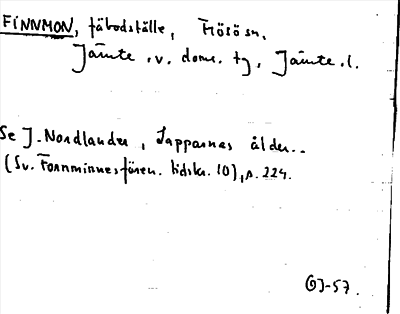 FINNMON, fäbodställe, Frösö sn.
Jämte.v. doms. tg, Jämte.l.
Se J. Nordlander, Lapparnas ålder..
(Sv. Fornminnesfören. tidskr. 10), s. 224.
GJ-57.